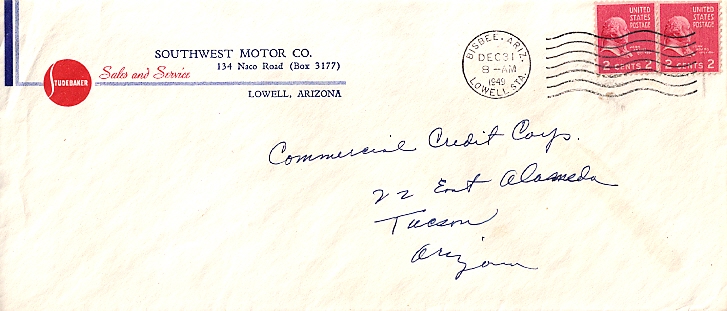 SOUTHWEST MOTOR CO.
134 Naco Road (Box 3177)
STUDEBAKER
Sales and Service
LOWELL, ARIZONA
BISBEE, ARIZ.
DEC 31
8-AM
1949
LOWELL STA.
UNITED STATES POSTAGE
2 CENTS 2
UNITED STATES POSTAGE
2 CENTS 2
Commercial Credit Corp.
22 East Alameda
Tucson
Arizona